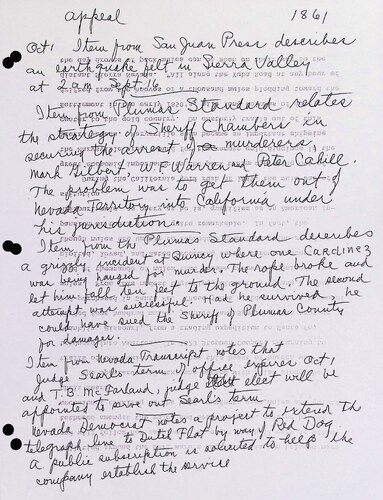 appeal 1861
Oct 1 Item from San Juan Press describes
an earthquake felt in Sierra Valley
at 2 am Sept 16.
Item from Plumas Standard relates
the strategy of Sheriff Chambers in
securing the arrest of murderers,
Mark Hilbert, W F Warren and Peter Cahill.
The problem was to get them out of
Nevada Territory into California under
his jurisdiction.
Item from the Plumas Standard describes
a grizzly incident at Quincy where one Cardinez
was being hanged for murder. The rope broke and
let him fall ten feet to the ground. The second
attempt was successful. Had he survived, he
could have sued the Sheriff of Plumas County
for damages.
Item from Nevada Transcript notes that
Judge Searls term of office expires Oct 1
and T.B. McFarland, judge elect will be
appointed to serve out Searls term
Nevada Democrat notes a project to extend the
telegraph line to Dutch Flat by way of Red Dog
A public subscription is solicited to help the
company establish the service